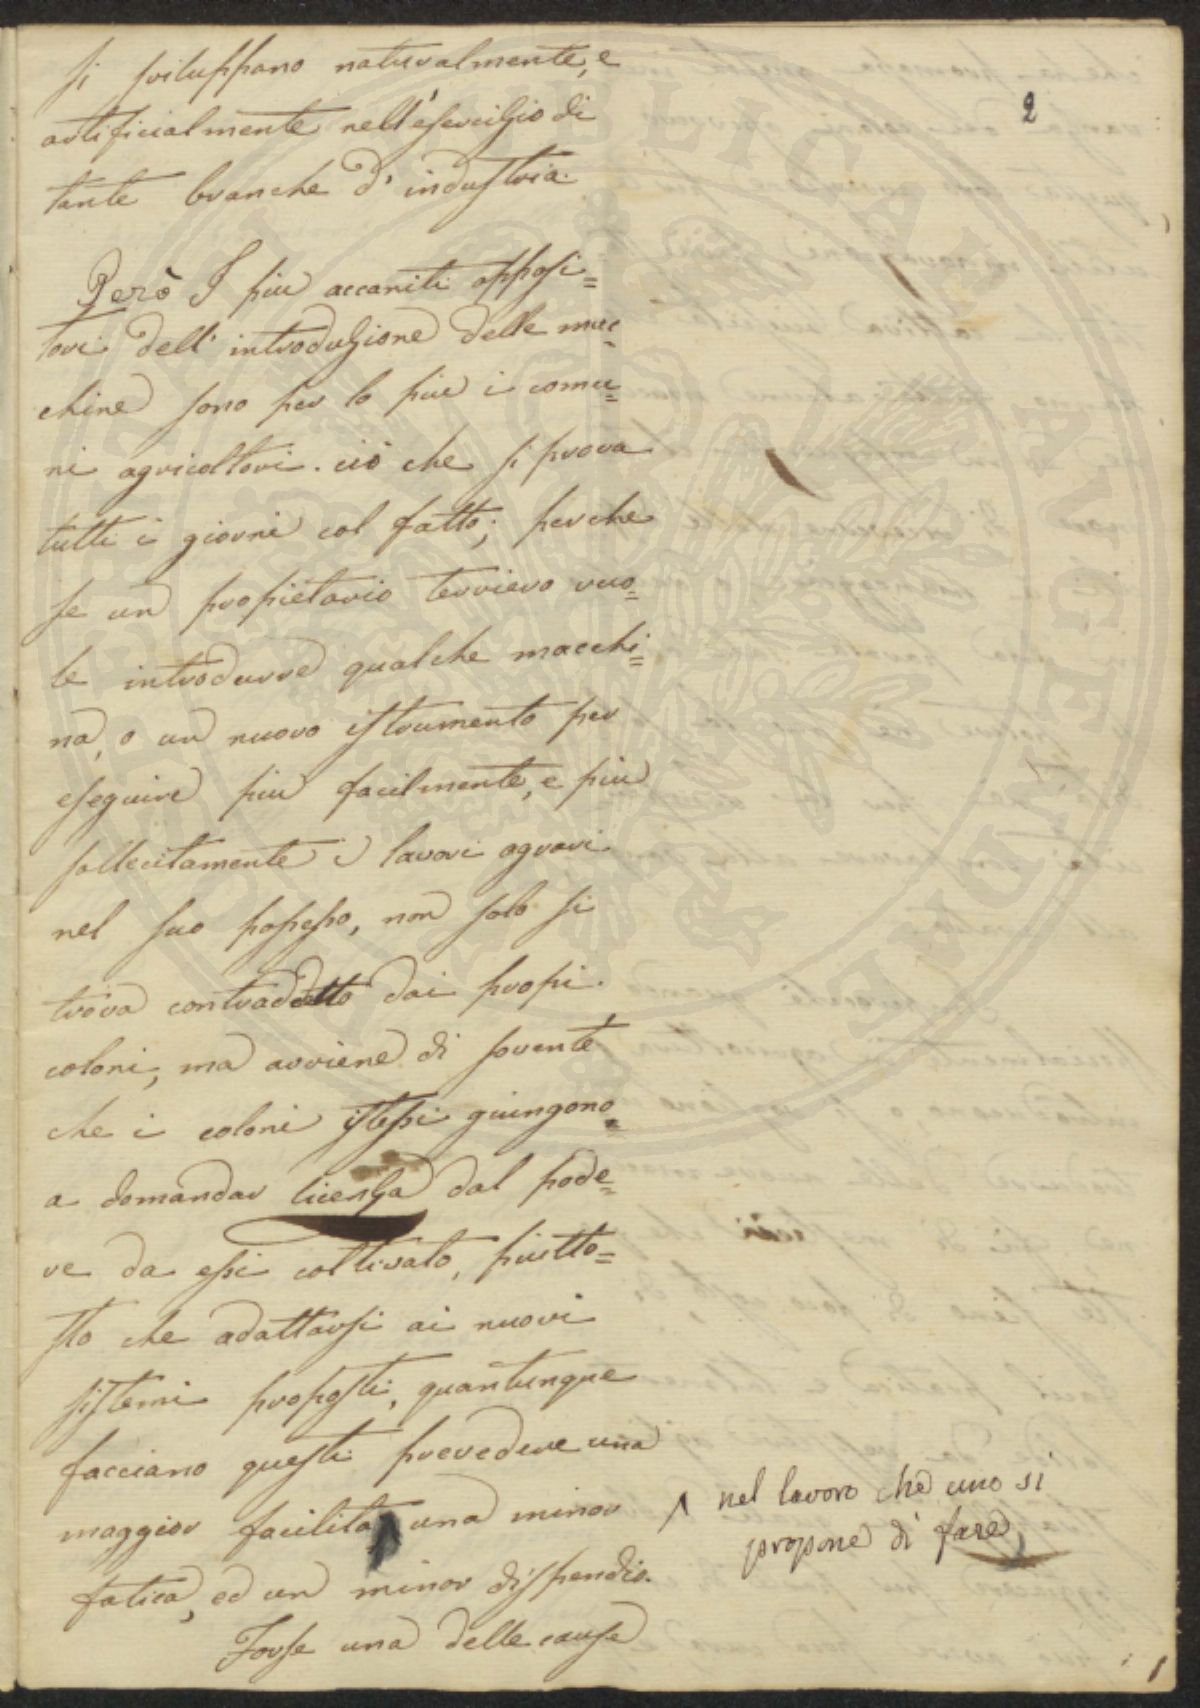 2
si sviluppano naturalmente, e
artificialmente nell'esercizio di
tante branche d'industria.
Però I piu accaniti opposi=
tori dell'introduzione delle mac=
chine sono per lo piu i comu=
ni agricoltori. ciò che si prova
tutti i giorni col fatto; perche
se un propietario terriero vuo=
le introdurre qualche macchi=
na, o un nuovo istrumento per
eseguire piu facilmente, e piu
sollecitamente i lavori agrari
nel suo possesso, non solo si
trova contraddetto dai propi
coloni, ma avviene di sovente
che i coloni istessi giungono
a domandar licenza dal pode=
re da essi coltivato, piutto=
sto che adattarsi ai nuovi
sistemi proposti, quantunque
facciano questi prevedere una
maggior facilità una minor
fatica, ed un minor dispendio.
Forse una delle cause
nel lavoro che uno si
propone di fare,